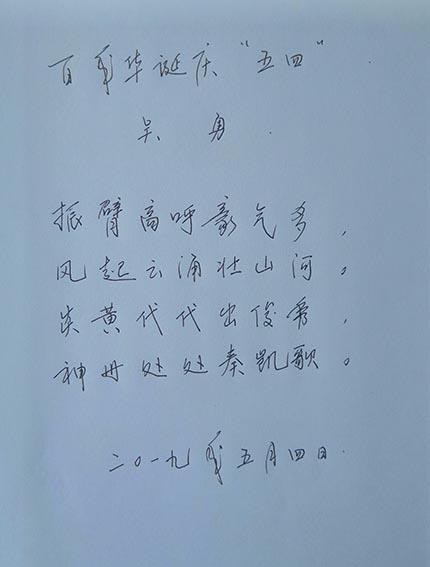 百年华诞庆“五四”
吴勇
振臂高呼豪气多，
风起云涌壮山河。
炎黄代代出俊秀，
神州处处奏凯歌。
二〇一九年五月四日